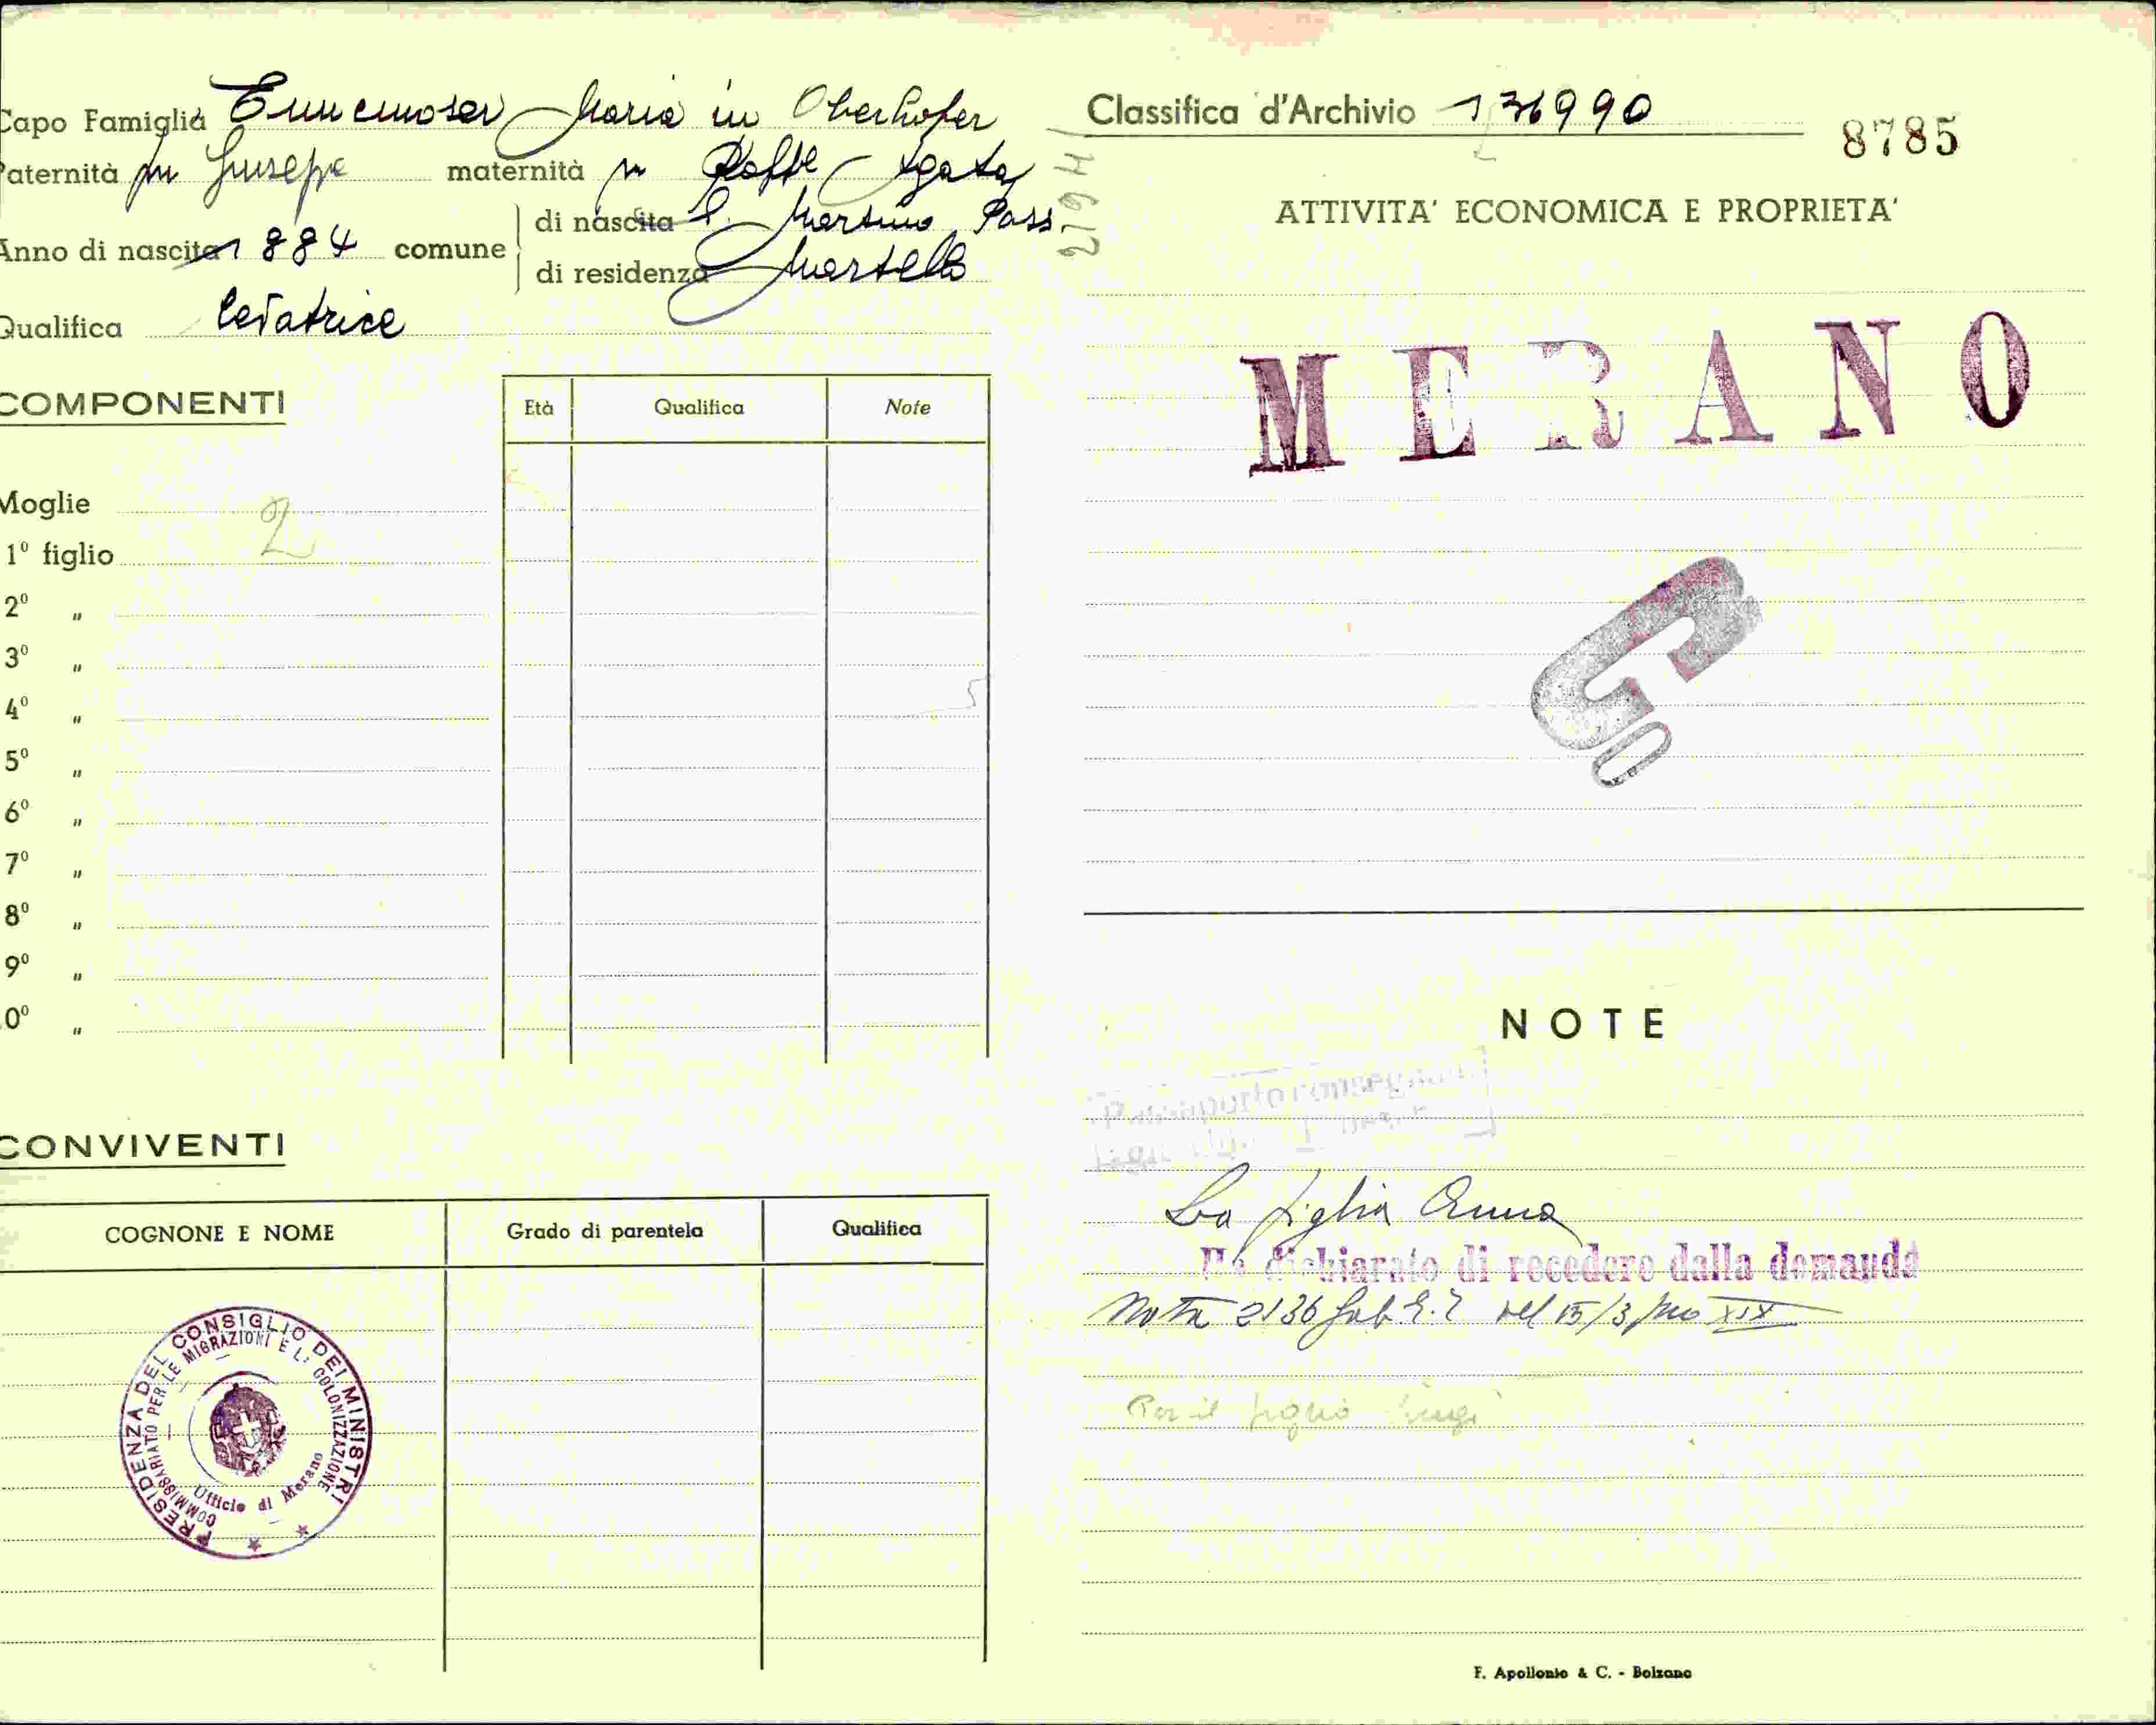 Capo Famiglia Ennemoser Maria in Oberhofer
Paternità fu Giuseppe maternità fu Agata
Anno di nascita 1884 comune di nascita S. Martino Pass.
di residenza Martello
Qualifica levatrice
COMPONENTI
Età Qualifica Note
Moglie
2
1º figlio
2º "
3º "
4º "
5º "
6º "
7º "
8º "
9º "
0º "
CONVIVENTI
COGNONE E NOME Grado di parentela Qualifica
PRESIDENZA DEL CONSIGLIO DEI MINISTRI
COMMISSARIATO PER LE MIGRAZIONI E LA COLONIZZAZIONE
Ufficio di Merano
Classifica d'Archivio 136990
8785
ATTIVITA' ECONOMICA E PROPRIETA'
MERANO
G
NOTE
La figlia Anna
Ha dichiarato di recedere dalla domanda
Nota 2136 Gab. del 15/3 XIX
Per il figlio Luigi
F. Apollonio & C. - Bolzano